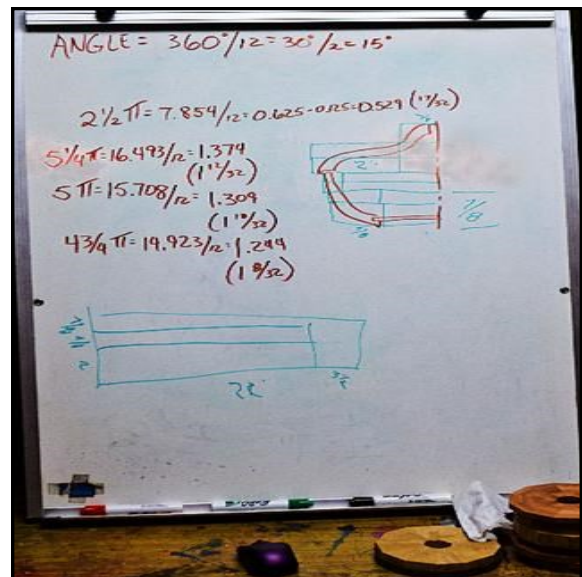 ANGLE = 360°/12 = 30°/2 = 15°
2 1/2 π = 7.854/12 = 0.625 - 0.125 = 0.529 (17/32)
5 1/4 π = 16.493/12 = 1.374
(1 12/32)
5 π = 15.708/12 = 1.309
(1 10/32)
4 3/4 π = 14.923/12 = 1.244
(1 8/32)
2"
7/8